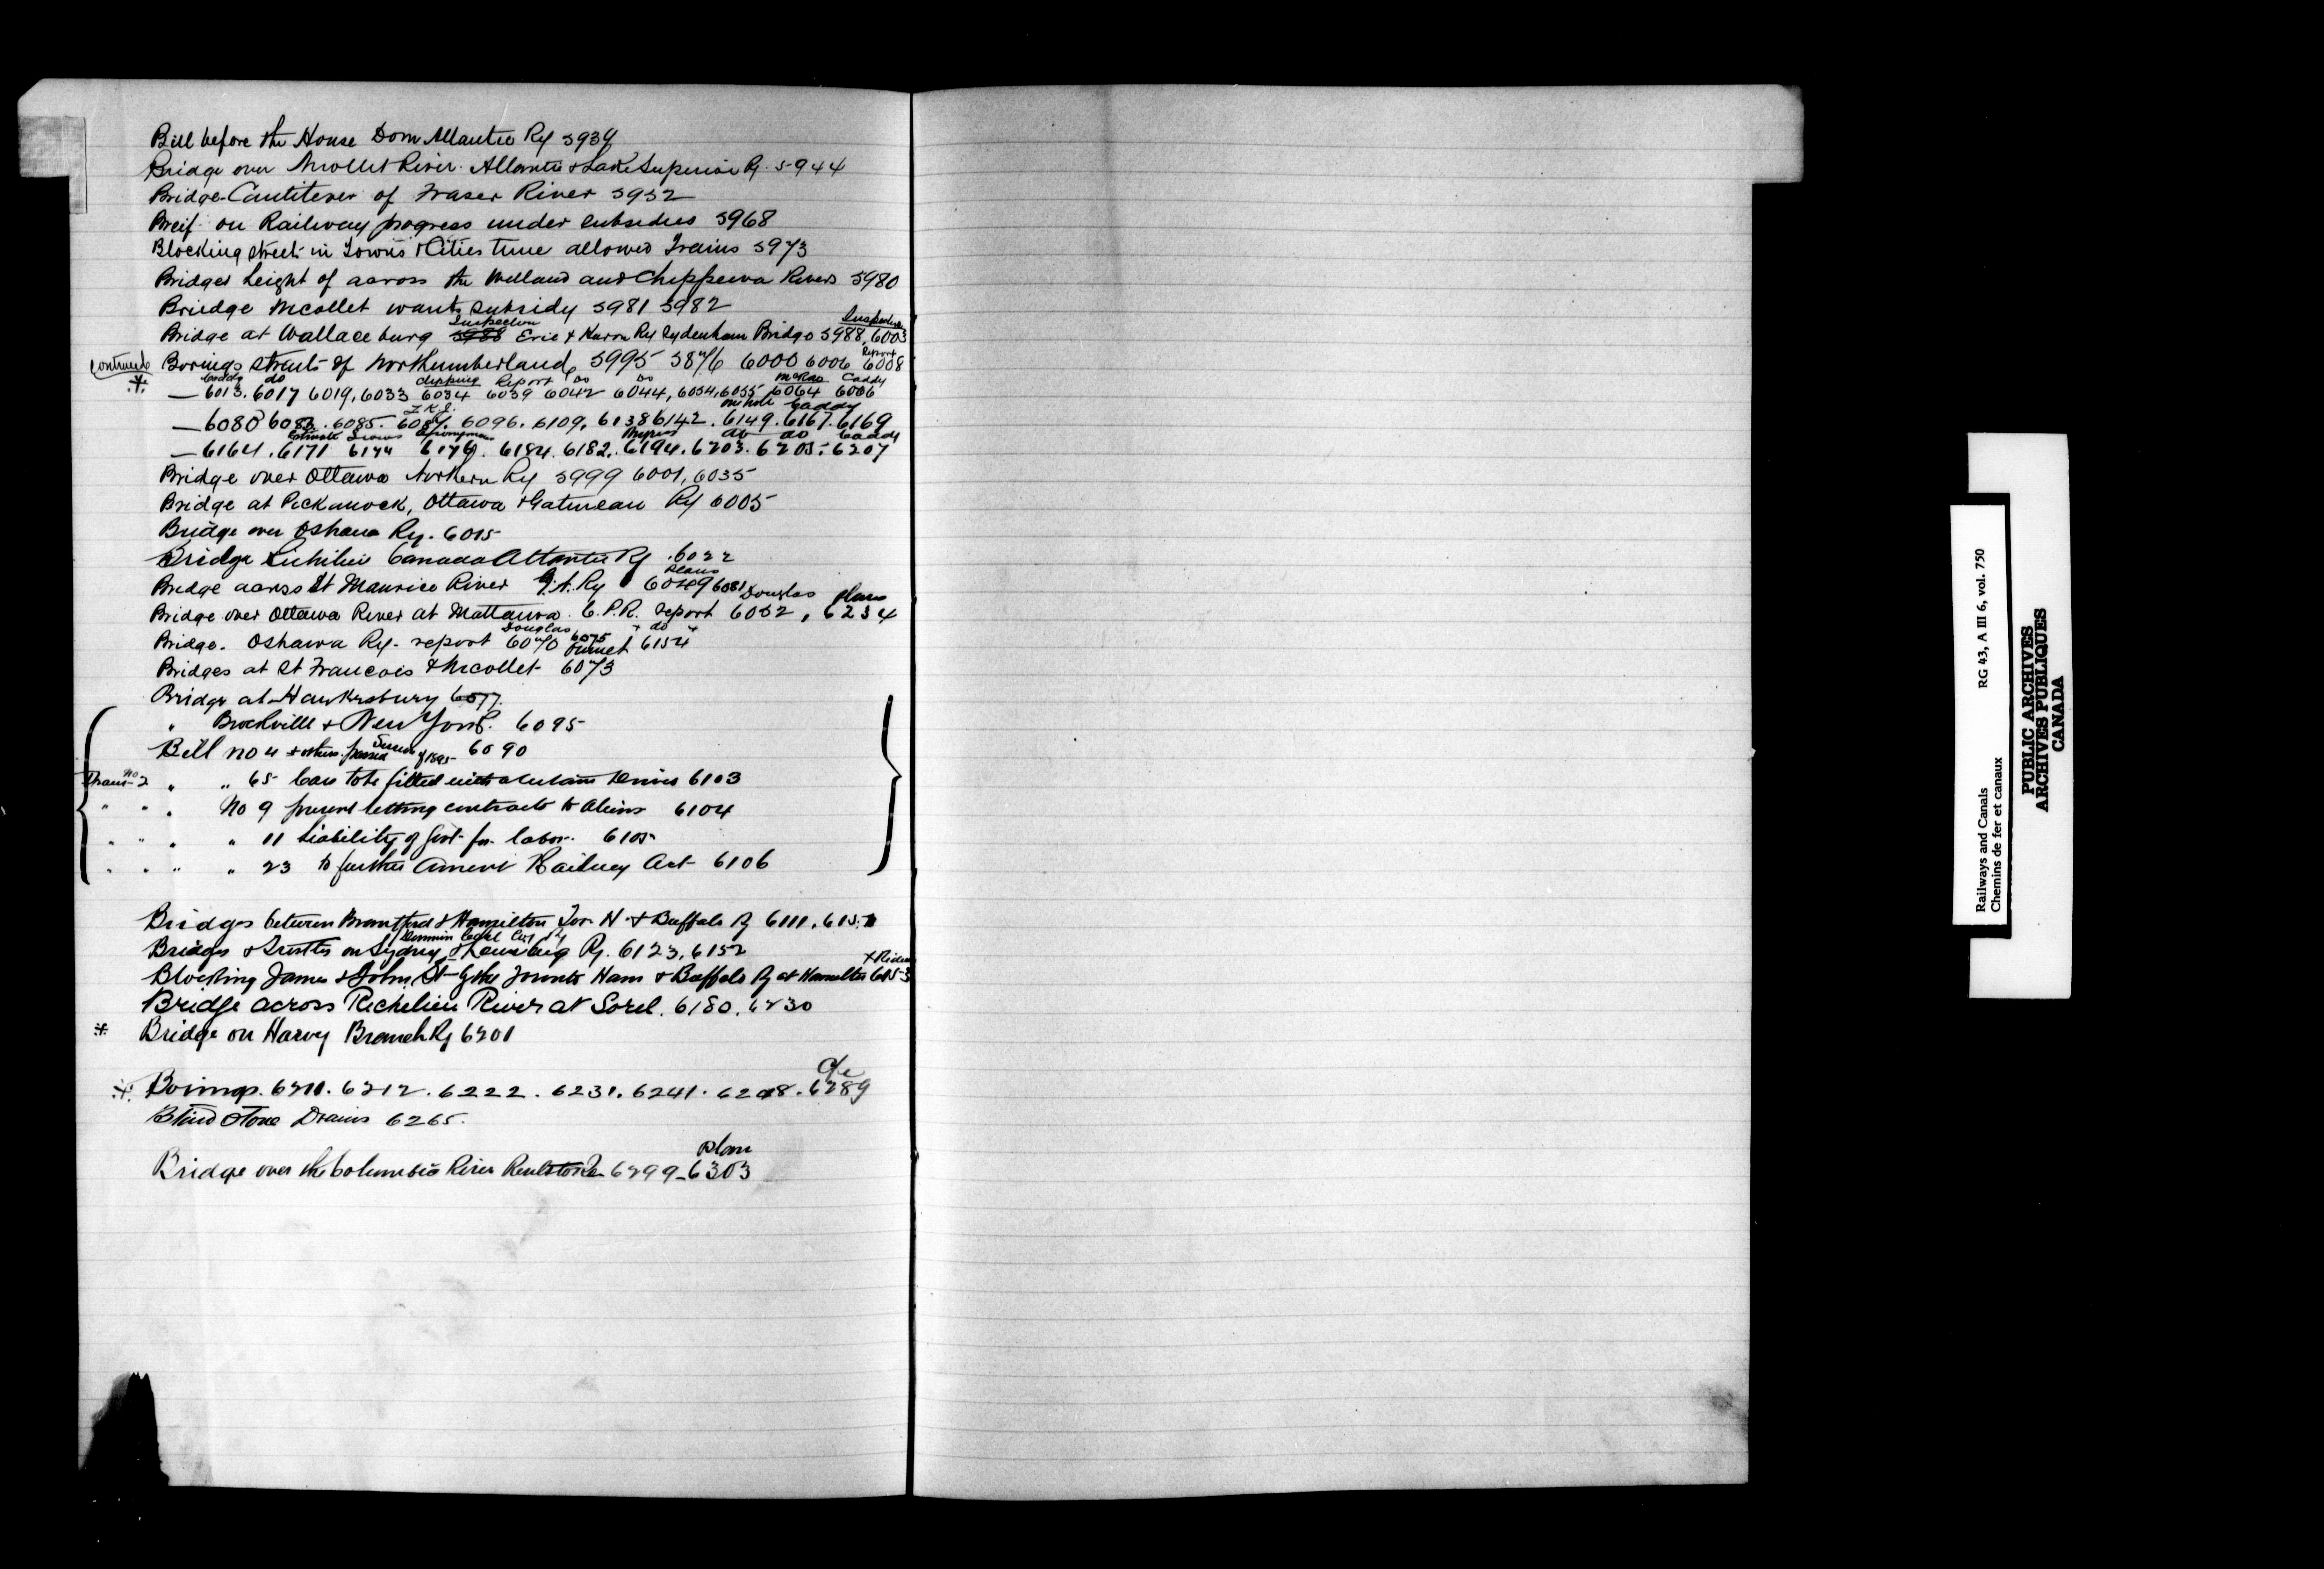 Bill before the House Dom Atlantic Ry 5939
Bridge over Nicollet River. Atlantic & Lake Superior Ry. 5944
Bridge-Cantilever of Fraser River 5952
Breif on Railway progress under subsidies 5968
Blocking street in Towns & Cities time allowed Trains 5973
Bridges height of across the Welland and Chippewa Rivers 5980
Bridge Nicollet wants subsidy 5981 5982
Inspection Inspection
Bridge at Wallaceburg 5988 Erie & Huron Ry Sydenham Bridge 5988, 6003
Report
continued Borings straits of Northumberland, 5995 5876 6000 6006 6008
Caddy do clipping Report Do Do McRae Caddy
— 6013. 6017 6019, 6033 6034 6039 6042 6044, 6054, 6055 6064 6066
Caddy
— 6080 6085. 6096. 6109, 6138 6142. 6149. 6167. 6169
Estimate do do Caddy
— 6164. 6171 6174 6176. 6184. 6182. 6194. 6203. 6205. 6207
Bridge over Ottawa Northern Ry 5999 6001, 6035
Bridge at Pickanock, Ottawa & Gatineau Ry 6005
Bridge over Oshawa Ry. 6015
Bridge Richilieu Canada Atlantic Ry. 6022
Plans
Bridge across St Maurice River Ry 6049 6081
Douglas plans
Bridge over Ottawa River at Mattawa. C.P.R. report 6052, 6234
Douglas 6075 & do
Bridge. Oshawa Ry. report 6070 6154
Bridges at St Francois & Nicollet 6073
Bridge at Hawkesbury 6077.
" Brockville & New York. 6095
Bill no 4 & others passed Session of 1895 6090
no 2 " " 65 Cars to be fitted with 6103
" " " No 9 prevent letting contracts to Aliens 6104
" " " " 11 Liability of Govt for labor. 6105
" " " " 23 to further Amend Railway Act 6106
Bridges between Brantford & Hamilton Tor. H. & Buffalo Ry 6111. 615
Dominion Coal Coy Ry
Bridges & Trestles on Sydney & Louisburg Ry. 6123, 6152
Blocking James & John St by the Toronto Ham & Buffalo Ry at Hamilton 6153
Bridge across Richelieu River at Sorel. 6180. 6230
* Bridge on Harvey Branch Ry 6201
* Borings. 6211. 6212. 6222. 6231. 6241. 6289
Blind Stone Drains 6265.
Plan
Bridge over the Columbia River Revelstoke 6299-6303
Railways and Canals RG 43, A III 6, vol. 750
Chemins de fer et canaux
PUBLIC ARCHIVES
ARCHIVES PUBLIQUES
CANADA